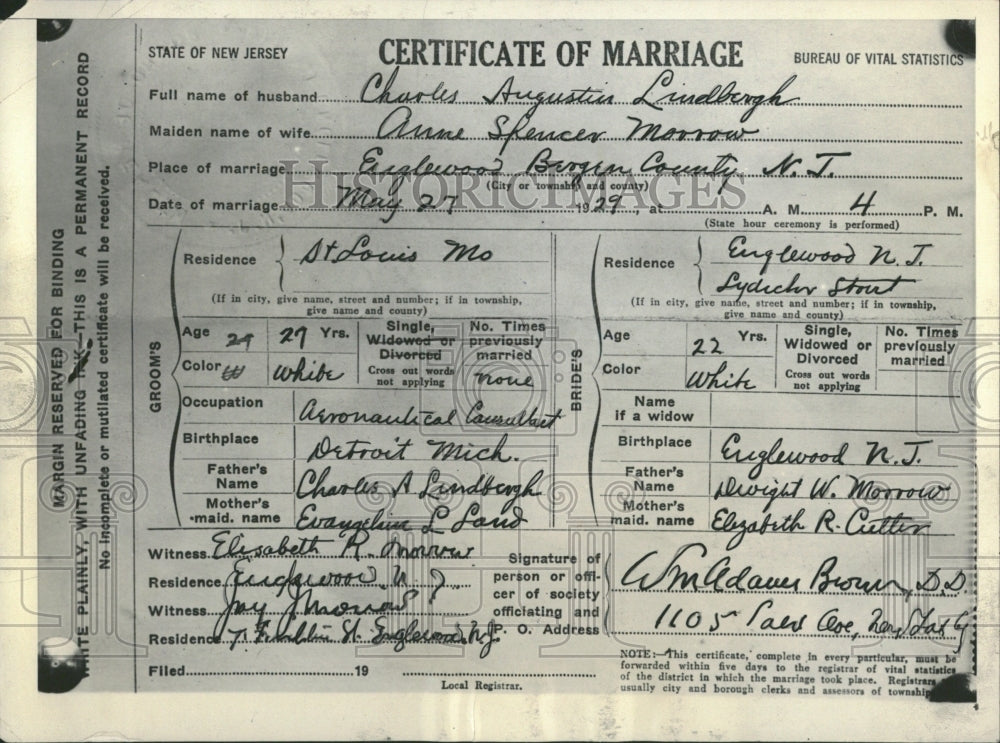 STATE OF NEW JERSEY CERTIFICATE OF MARRIAGE BUREAU OF VITAL STATISTICS
Full name of husband Charles Augustus Lindbergh
Maiden name of wife Anne Spencer Morrow
Place of marriage Englewood Bergen County N. J.
(City or township and county)
HISTORIC IMAGES
Date of marriage May 27 1929, at A. M. 4 P. M.
(State hour ceremony is performed)
MARGIN RESERVED FOR BINDING
WRITE PLAINLY, WITH UNFADING INK—THIS IS A PERMANENT RECORD
No incomplete or mutilated certificate will be received.
GROOM'S
Residence St Louis Mo
(If in city, give name, street and number; if in township,
give name and county)
Age 29 27 Yrs. Single, Widowed or Divorced No. Times previously married
Color W White Cross out words not applying none
Occupation Aeronautical Consultant
Birthplace Detroit Mich.
Father's Name Charles A Lindbergh
Mother's maid. name Evangeline L Land
BRIDE'S
Residence Englewood N. J.
Lydecker Street
(If in city, give name, street and number; if in township,
give name and county)
Age 22 Yrs. Single, Widowed or Divorced No. Times previously married
Color White Cross out words not applying
Name if a widow
Birthplace Englewood N. J.
Father's Name Dwight W. Morrow
Mother's maid. name Elizabeth R. Cutter
Witness Elisabeth R. Morrow
Residence Englewood N. J
Witness Jay J Morrow
Residence Franklin St. Englewood N.J.
Signature of person or officer of society officiating and P. O. Address
Wm Adams Brown, D.D.
1105 Park Ave,
Filed 19
Local Registrar.
NOTE:—This certificate, complete in every particular, must be
forwarded within five days to the registrar of vital statistics
of the district in which the marriage took place. Registrars
usually city and borough clerks and assessors of township